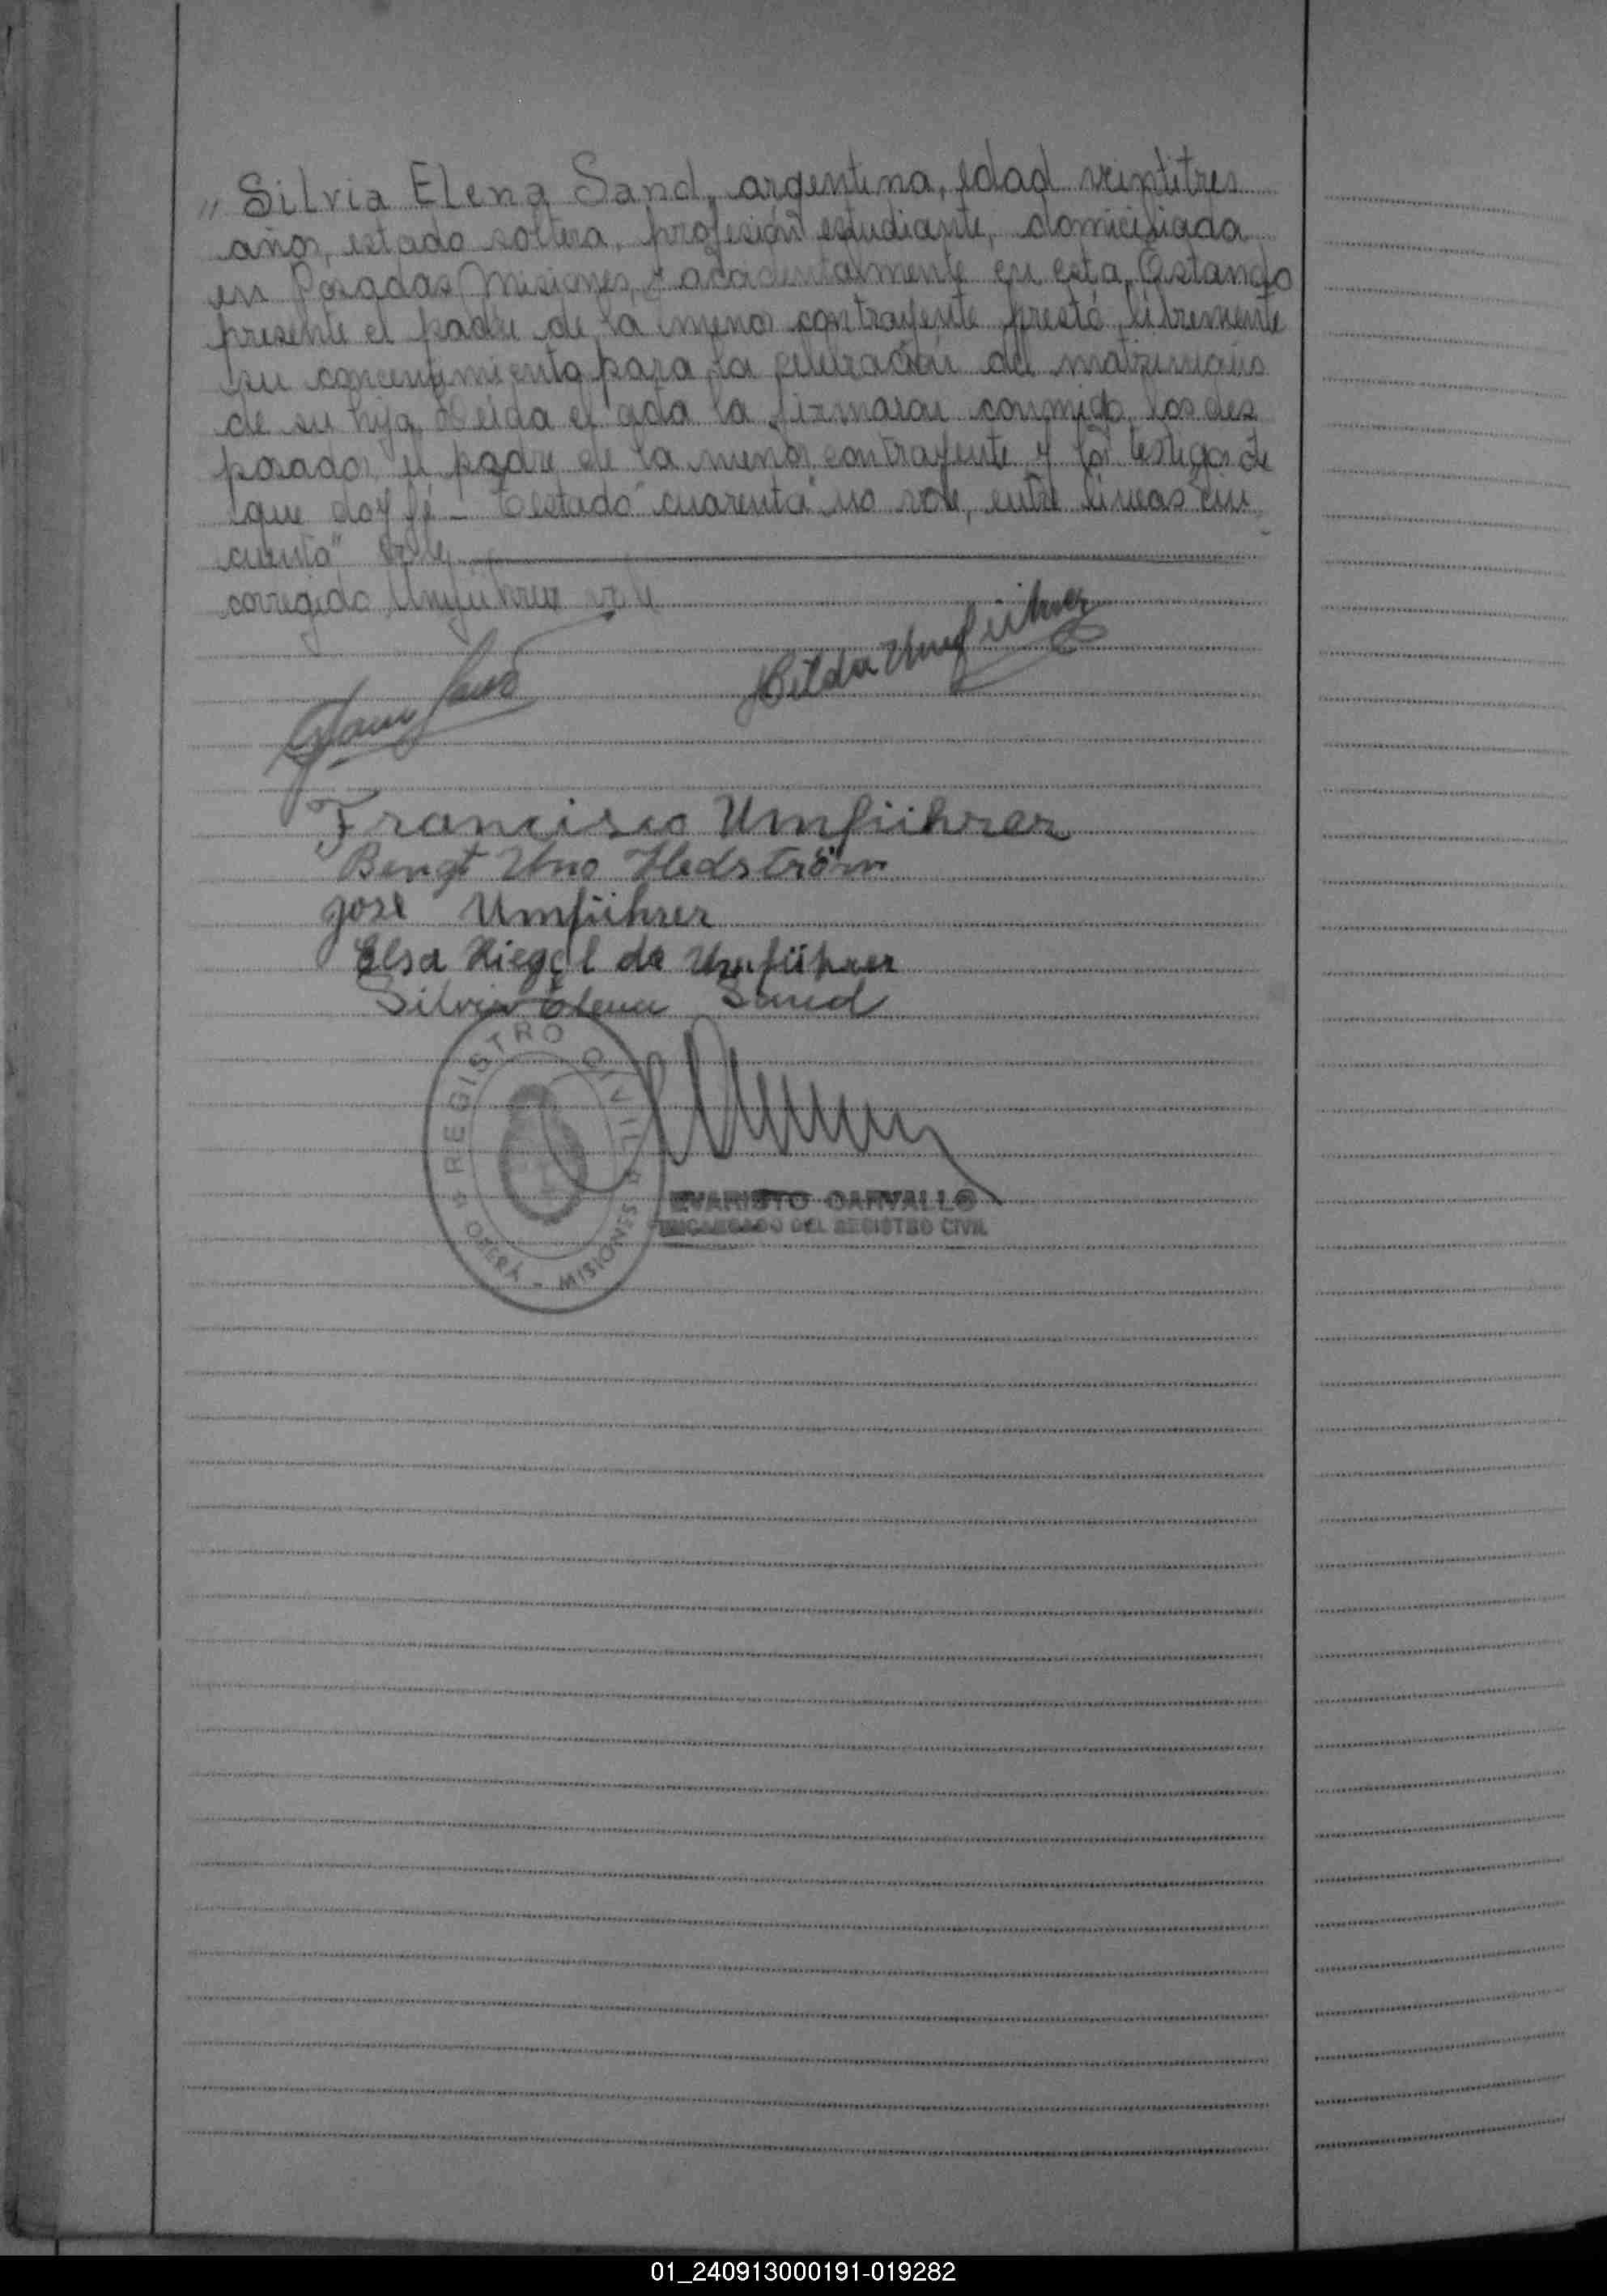 " Silvia Elena Sand, argentina, edad veintitres
años, estado soltera, profesión estudiante, domiciliada
en Posadas Misiones, y accidentalmente en esta. Estando
presente el padre de la menor contrayente prestó libremente
su concentimiento para la celebración del matrimonio
de su hija. Leida el acta la firmaron conmigo, los des
posados, el padre de la menor contrayente y los testigos de
que doy fé - Testado "cuarenta" no vale, entre lineas "cin
cuenta" vale
corregido Umführer vale
Sand
Hilda Umführer
Francisco Umführer
Bengt Uno Hedström
José Umführer
Elsa Riegel de Umführer
Silvia Elena Sand
REGISTRO CIVIL
OBERÁ - MISIONES
EVARISTO CARVALLO
ENCARGADO DEL REGISTRO CIVIL
01_240913000191-019282